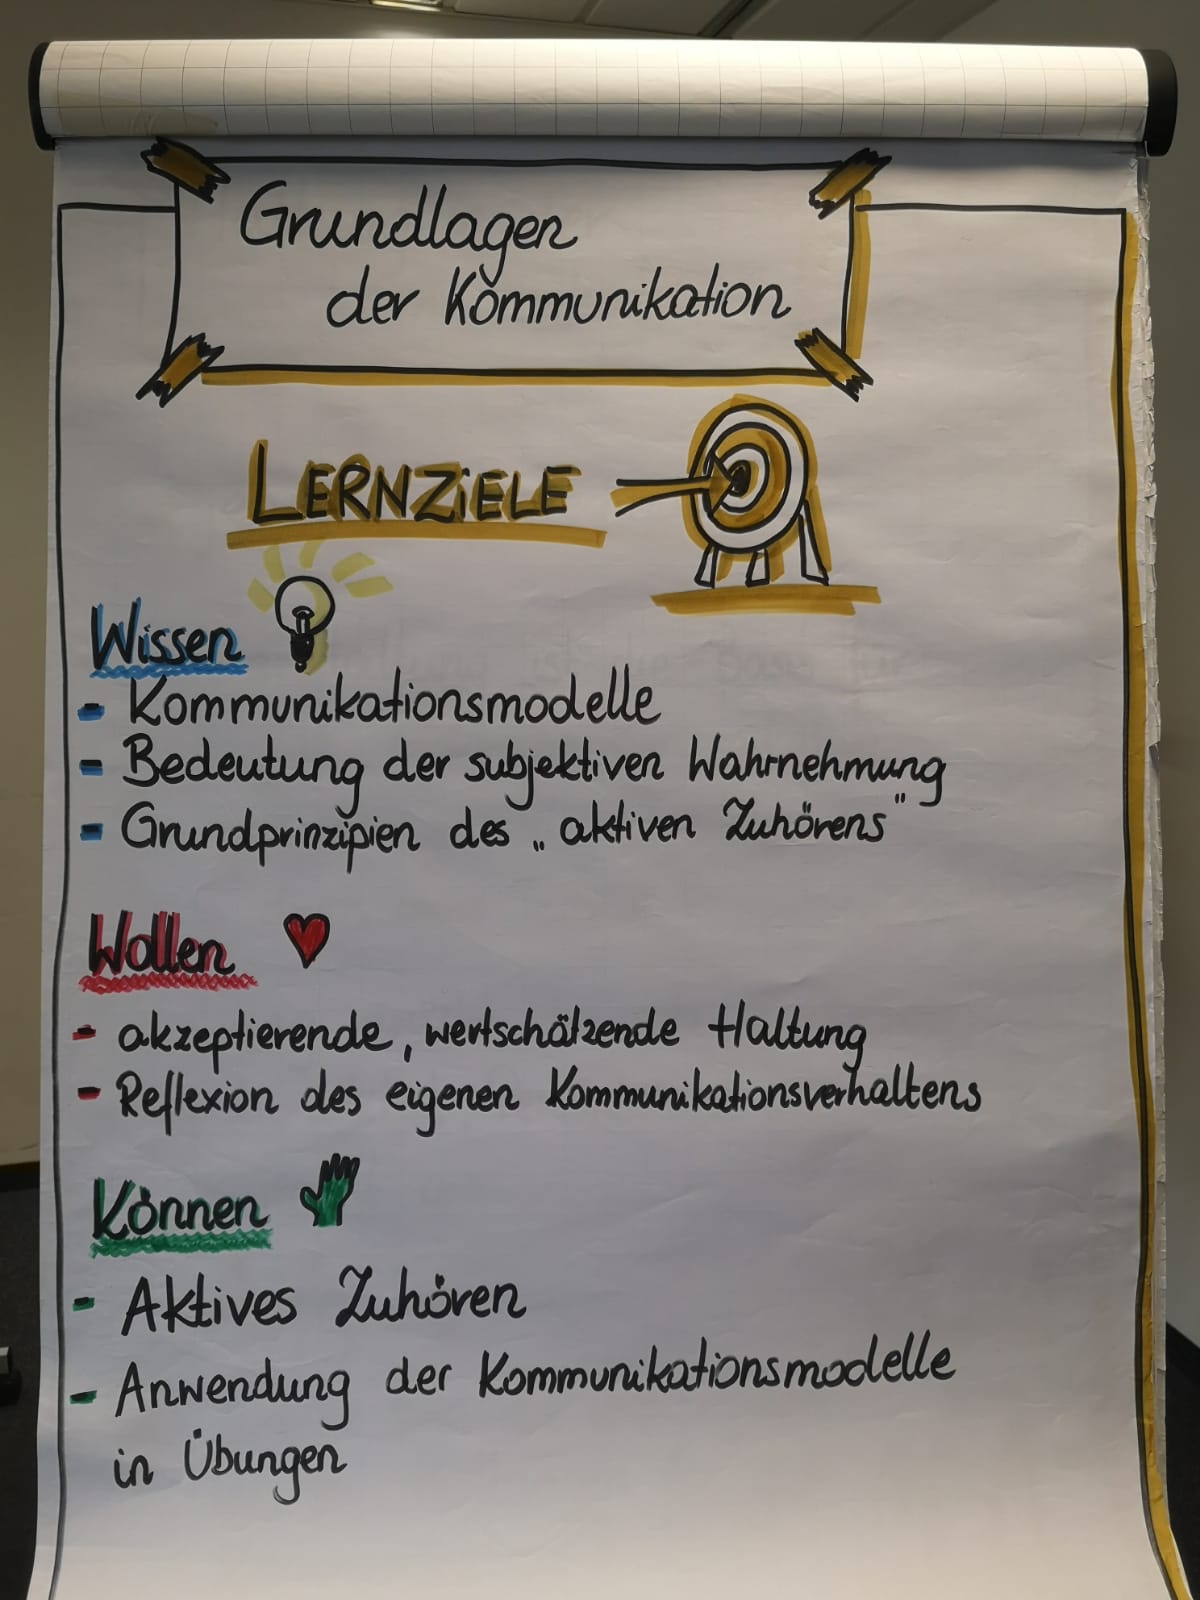 Grundlagen
der Kommunikation
LERNZiELE
Wissen
- Kommunikationsmodelle
- Bedeutung der subjektiven Wahrnehmung
- Grundprinzipien des „aktiven Zuhörens"
Wollen
- akzeptierende, wertschätzende Haltung
- Reflexion des eigenen Kommunikationsverhaltens
Können
- Aktives Zuhören
- Anwendung der Kommunikationsmodelle
in Übungen